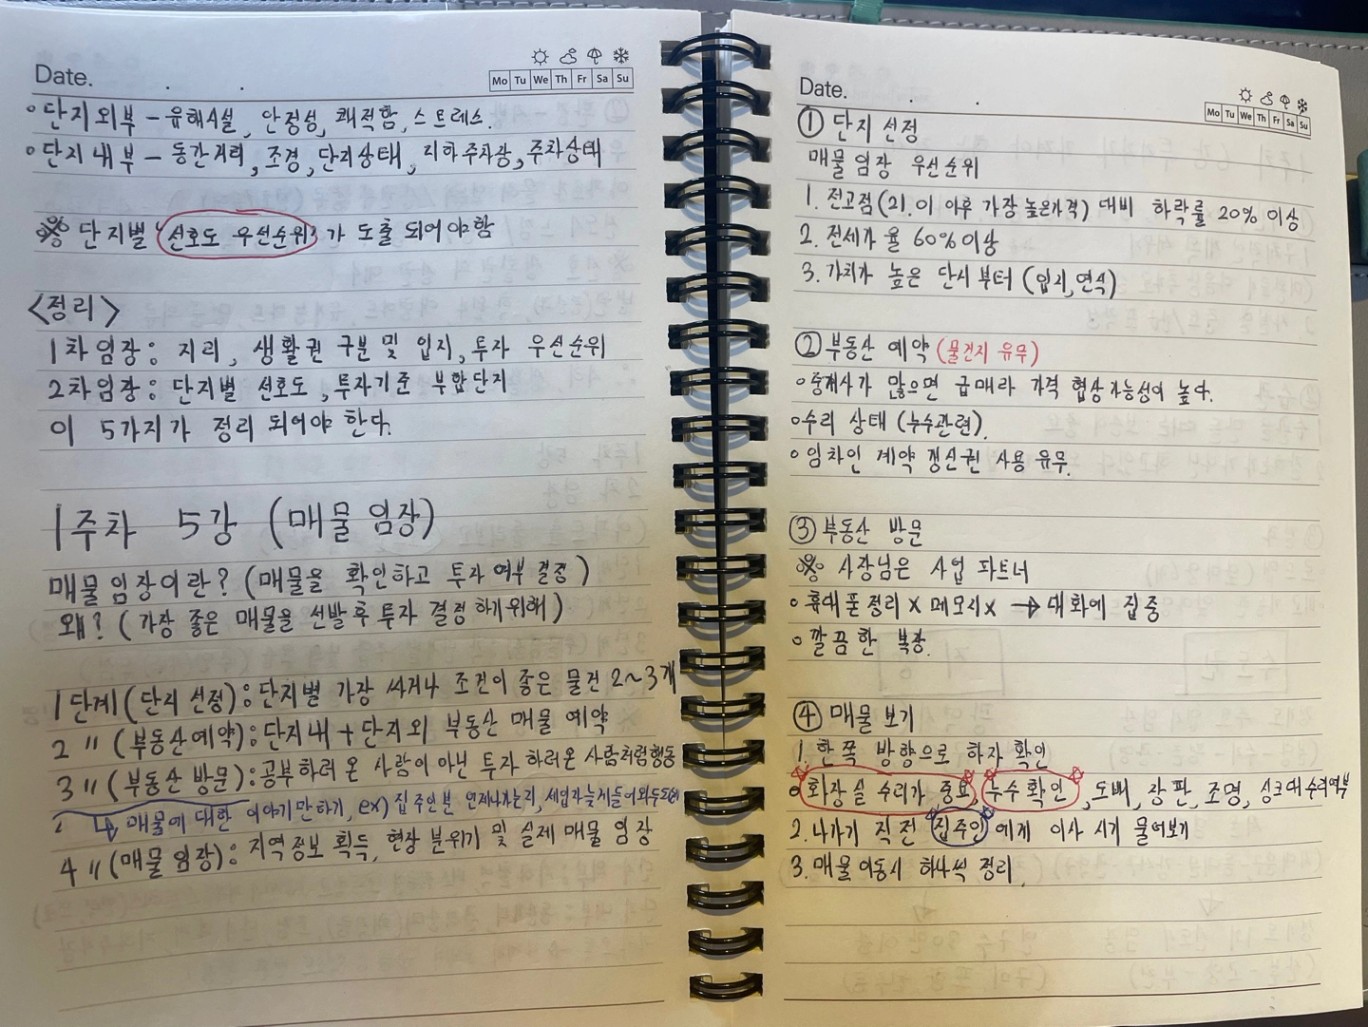 Date.
Mo Tu We Th Fr Sa Su
◦단지외부 – 유해시설, 안정성, 쾌적함, 스트레스.
◦단지내부 – 동간거리, 조경, 단지상태, 지하주차장, 주차상태
※ 단지별 '선호도 우선순위'가 도출 되어야함
<정리>
1차임장: 지리, 생활권 구분 및 입지, 투자 우선순위
2차임장: 단지별 선호도, 투자기준 부합단지
이 5가지가 정리 되어야 한다.
1주차 5강 (매물 임장)
매물임장이란? (매물을 확인하고 투자 여부 결정)
왜? (가장 좋은 매물을 선발 후 투자 결정하기위해)
1단계(단지 선정): 단지별 가장 싸거나 조건이 좋은 물건 2~3개
2 〃 (부동산예약): 단지내 + 단지외 부동산 매물 예약
3 〃 (부동산 방문): 공부하러 온 사람이 아닌 투자 하러온 사람처럼행동
↳ 매물에 대한 이야기만 하기, ex) 집주인분 언제나가는지,
4 〃 (매물 임장): 지역정보 획득, 현장 분위기 및 실제 매물 임장
Date.
Mo Tu We Th Fr Sa Su
① 단지 선정
매물 임장 우선순위
1. 전고점(21.이 이후 가장 높은가격) 대비 하락률 20% 이상
2. 전세가율 60%이상
3. 가치가 높은 단지부터 (입지,연식)
② 부동산 예약 (물건지 유무)
◦중개사가 많으면 급매라 가격 협상가능성이 높다.
◦수리 상태 (누수관련).
◦임차인 계약 갱신권 사용 유무.
③ 부동산 방문
※ 사장님은 사업 파트너
◦휴대폰정리x 메모시x → 대화에 집중
◦깔끔한 복장.
④ 매물 보기
1. 한쪽 방향으로 하자 확인
◦화장실 수리가 중요, 누수확인, 도배, 장판, 조명, 싱크대수리여부
2. 나가기 직전 집주인에게 이사 시기 물어보기
3. 매물이동시 하나씩 정리.